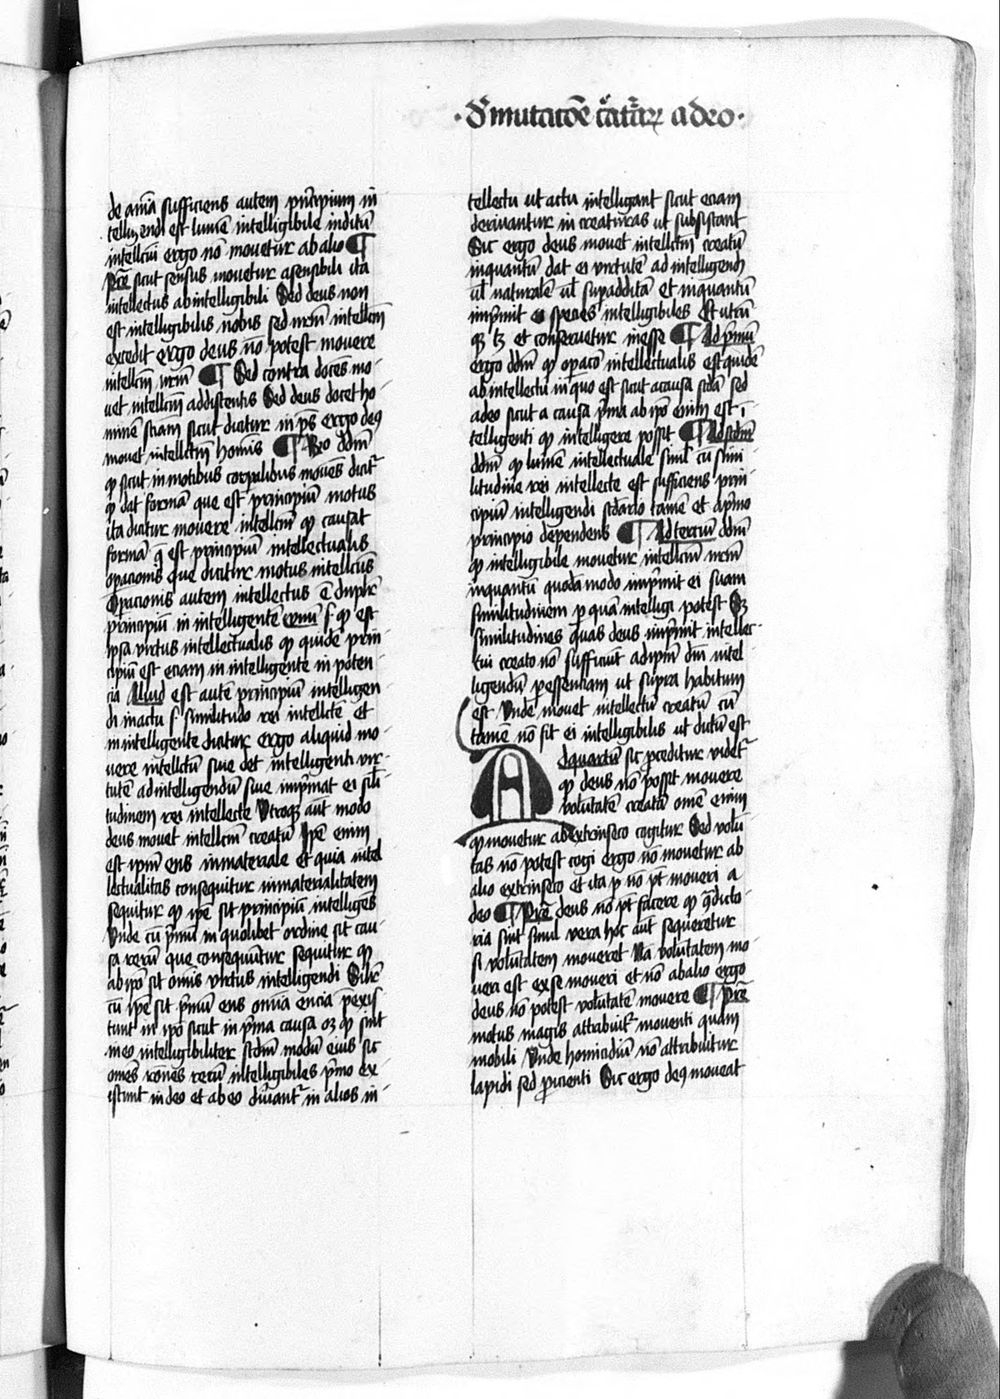 ·De mutatōe c̄aturarꝝ a deo·
de aīa sufficiens autem prīncipium in
telligendi est lumē intelligibile inditū
intellcui ergo nō mouetur ab alio ¶
Pret̄ sicut sensus mouetur a sensibili ita
intellectus ab intelligibili Sed deus non
est intelligibilis nobis sed nrm̄ intellcm̄
excedit ergo deus nō potest mouere
intellcm̄ nrm̄ ¶ Sed contra docēs mo-
uet intellcm̄ addiscentis Sed deus docet ho-
minē sciam̄ sicut dicitur in ps̄ ergo deꝰ
mouet intellcm̄ hominis ¶ Rño dd̄m
ꝙ sicut in motibus corꝑalibus mouēs dicit᷑
ꝙ dat formā que est principiū motus
ita dicitur mouere intellcm̄ ꝙ causat
formā q̄ est principiū intellectualis
oꝑacionis que dicitur motus intellcūs
Oꝑacionis autem intellectus ē duplex
principiū in intelligente vnū s̄ ꝙ est
ipsa virtus intellectualis ꝙ quidē prin
cipiū est eciam in intelligente in poten-
cia Aliud est autē principiū intelligen
di in actu s̄ similitudo rei intellcte et
in intelligente dicitur ergo aliquid mo-
uere intellctū siue det intelligenti vir-
tutē ad intelligendū siue imprīmat ei sili
tudinem rei intellecte Vtroqꝫ aūt modo
deus mouet intellcm̄ creatū Ipē enim
est prīmū ens inmateriale et quia intel
lectualitas consequitur inmaterialitatem
sequitur ꝙ ipē sit principiū intelligēs
Vnde cū prīmū in quolibet ordine sit cau-
sa rerū que consequūtur sequitur ꝙ
ab ipō sit omīs virtus intelligendi Silr̄
cū ipē sit prīmū ens omnia encia prēxis-
tunt in ipō sicut in prīma causa oꝫ ꝙ sint
in eo intelligibiliter scdm̄ modū eius sic
omēs rōnes rerū intelligibiles prīmo ex
istunt in deo et ab eo diriuant᷑ in alios in-
tellectu ut actu intelligant sicut eciam
deriuantur in creaturas ut subsistant
Sic ergo deus mouet intellcm̄ creatū
inquantū dat ei virtutē ad intelligendū
ul̄ naturalē ul̄ suꝑadditā et inquantū
imprīmit ei species intelligibiles Et utrū
qꝫ tꝫ et conseruetur in esse ¶ Ad prīmū
ergo dd̄m ꝙ oꝑacō intellectualis est quidē
ab intellectu in quo est sicut a causa scda sed
a deo sicut a causa prīma ab ipō enim est ī
telligenti ꝙ intelligere possit ¶ Ad scdm̄
dd̄m ꝙ lumē intellectuale simul cū simi
litudine rei intellecte est sufficiens prin
cipiū intelligendi scdario tamē et a prīmo
principio dependens ¶ Ad terciū dd̄m
ꝙ intelligibile mouetur intellcm̄ nrm̄
inquantū quodā modo imprīmit ei suam
similitudinem ꝑ quā intelligi potest Sꝫ
similitudines quas deus imprīmit intellec-
tui creato nō sufficiūt ad ipm̄ dm̄ intel
ligendū ꝑ essenciam ut supra habitum
est Vnde mouet intellectū creatū cū
tamē nō sit ei intelligibilis ut dictū est
Ad quartū sic proceditur videt᷑
ꝙ deus nō possit mouere
voluntatē creatā omē enim
ꝙ mouetur ab extrinseco cogitur Sed volū
tas nō potest cogi ergo nō mouetur ab
alio extrinseco et ita ꝑ nō pt̄ moueri a
deo ¶ Pret̄ deus nō pt̄ facere ꝙ cōtradicto-
ria sint simul vera hoc aūt sequeretur
si volūtatem moueret Nā volūtatem mo-
ueri est ex se moueri et nō ab alio ergo
deus nō potest volūtatē mouere ¶ Pret̄
motus magis attribuit᷑ mouenti quam
mobili Vnde homicidiū nō attribuitur
lapidi sed proicienti Sic ergo deꝰ moueat